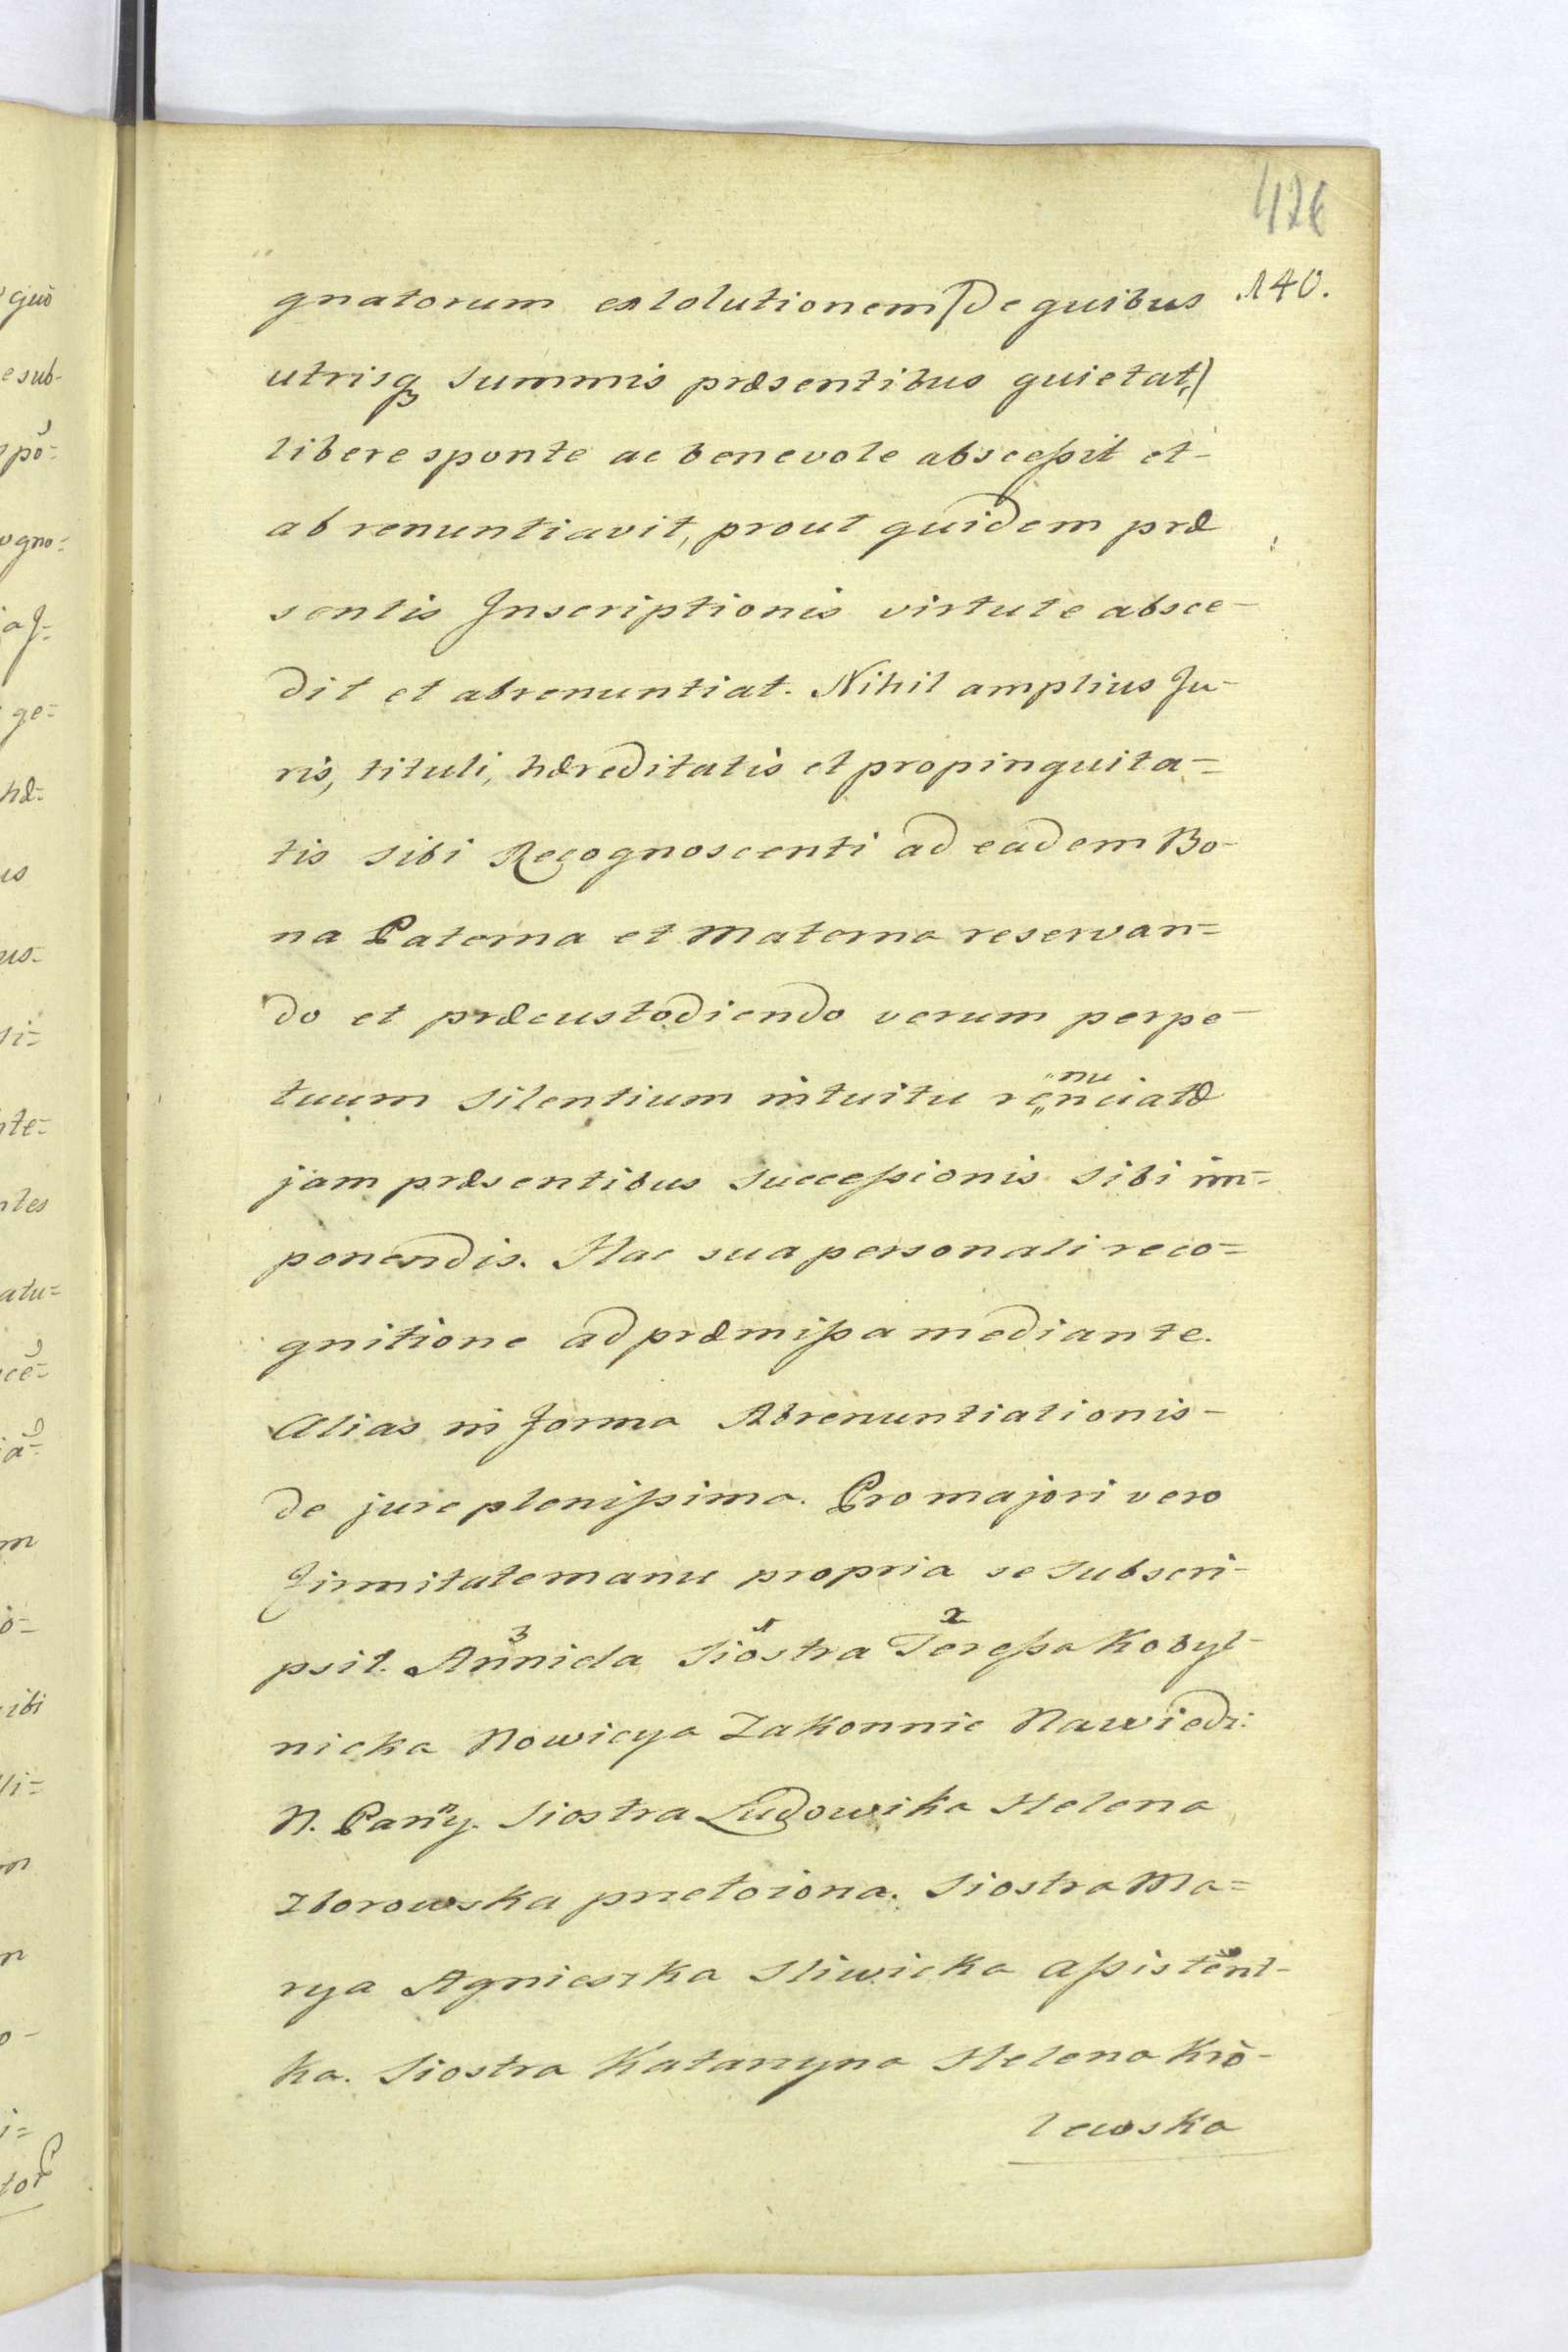 426
gnatorum exlolutionem (De quibus 140.
utrisq3 summis præsentibus quietat,)
libere sponte ac benevole abscessit et-
abrenuntiavit, prout quidem præ
sentis Inscriptionis virtute absce-
dit et abrenuntiat. Nihil amplius Ju-
ris, tituli, hæreditatis et propinquita=
tis sibi Recognoscenti ad eadem Bo-
na Paterna et Materna reservan=
do et præcustodiendo verum perpe-
tuum silentium intuitu renunciatæ
jam præsentibus successionis sibi im=
ponendis. Hac sua personali reco=
gnitione ad præmissa mediante.
Alias in forma Abrenuntiationis-
de jure plenissima. Pro majori vero
firmitate manu propria se subscri-
psit. Anniela Siostra Teressa Kobyl-
nicka Nowicya Zakonnic Nawiedz:
N. Panny. Siostra Ludowika Helena
Zborowska przełoiona. Siostra Ma=
rya Agnieszka Sliwicka assistent-
ka. Siostra Katarzyna Helena Kró-
lewska